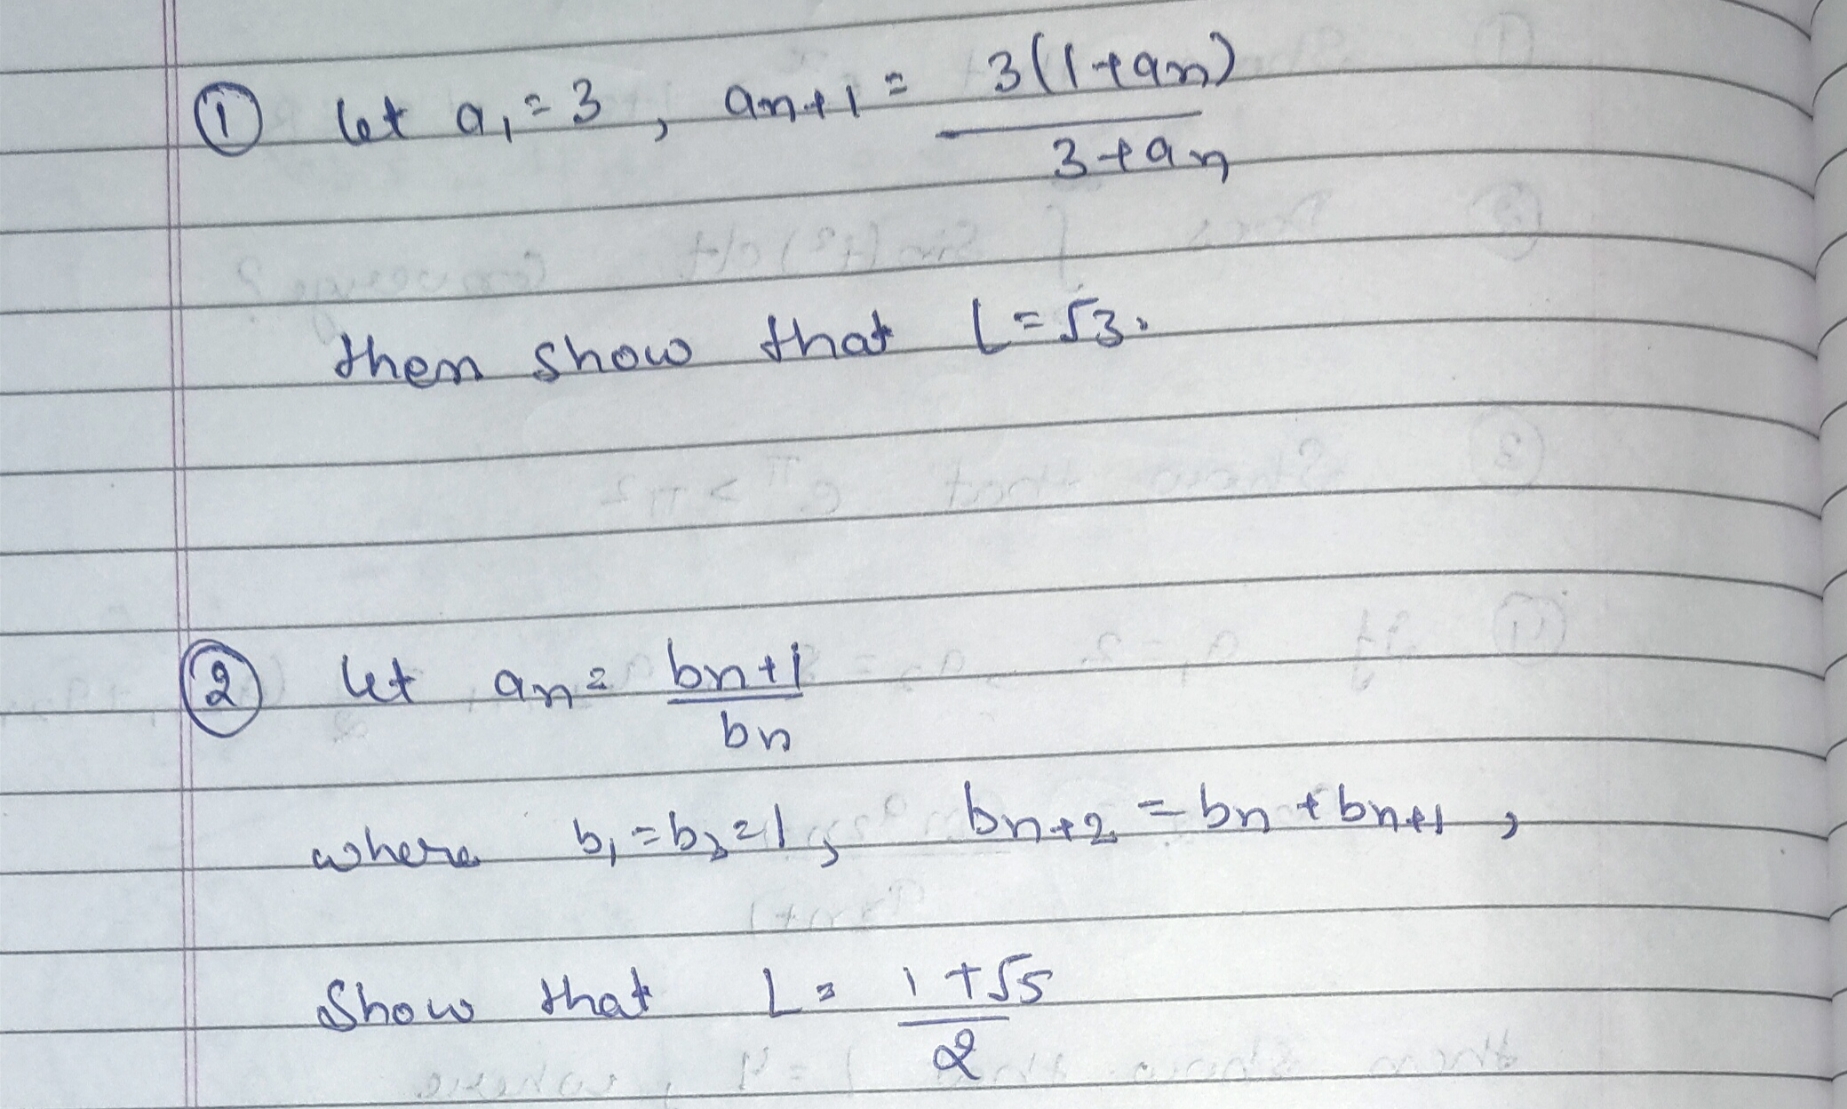 ① let a₁ = 3, aₙ₊₁ = 3(1+aₙ) / 3+aₙ
then show that L = √3.
② let aₙ = bₙ₊₁ / bₙ
where b₁ = b₂ = 1, bₙ₊₂ = bₙ + bₙ₊₁,
Show that L = 1+√5 / 2